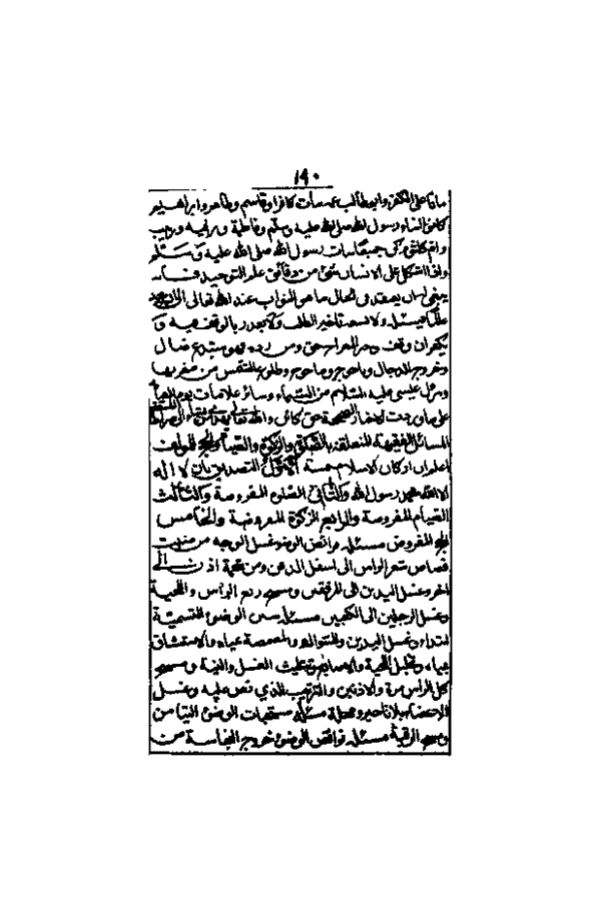 ١٩٠
ماتا على الكفر وابوطالب عمه مات كافرا وقاسم وطاهر وابراهيم
كانوا ابناء رسول الله صلى الله عليه وسلم وفاطمة ورقية وزينب
وام كلثوم كن جميعا بنات رسول الله صلى الله عليه وسلم
واذا اشكل على الانسان شئ من دقائق علم التوحيد
ينبغي له ان يعتقد في الحال ما هو الصواب عند الله تعالى الى ان يجد
عالما فيسئله ولا يسعه تاخير الطلب ولا يعذر بالوقف فيه و
يكفر ان وقف وخبر المعراج حق ومن رده فهو مبتدع ضال
وخروج الدجال وياجوج وماجوج وطلوع الشمس من مغربها
ونزول عيسى عليه السلام من السماء وسائر علامات يوم القيمة
على ما وردت به الاخبار الصحيحة حق كائن والله تعالى يهدي من يشاء الى صراط مستقيم
المسائل الفقهية المتعلقة بالصلوة والزكوة والصيام والحج
اعلم ان اركان الاسلام خمسة الاول التصديق بان لا اله
الا الله محمد رسول الله والثاني الصلوة المفروضة والثالث
الصيام المفروضة والرابع الزكوة المفروضة والخامس
الحج المفروض مسئله فرائض الوضوء غسل الوجه من منبت
قصاص شعر الراس الى اسفل الذقن ومن شحمة اذن الى
اخر وغسل اليدين الى المرفقين ومسح ربع الراس واللحية
وغسل الرجلين الى الكعبين مسئله سنن الوضوء التسمية
ابتداء وغسل اليدين والسواك والمضمضة بمياه والاستنشاق
بمياه وتخليل اللحية والاصابع وتثليث الغسل والنية ومسح
كل الراس مرة والاذنين والترتيب الذي نص عليه وغسل
الاعضاء بلا تاخير ومهلة مسئله مستحبات الوضوء التيامن
ومسح الرقبة مسئله نواقض الوضوء خروج النجاسة من